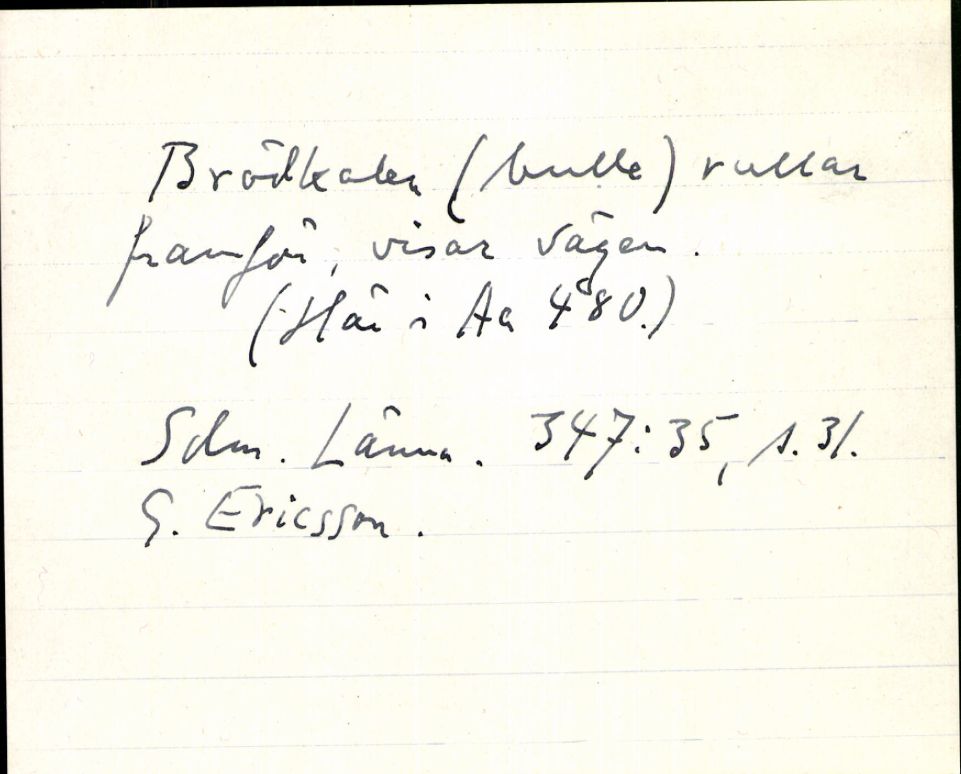 Brödkakan (bulle) rullar
framför, visar vägen.
(Här i Aa 480.)
Sdm. Länna. 347:35, s. 31.
G. Ericsson.